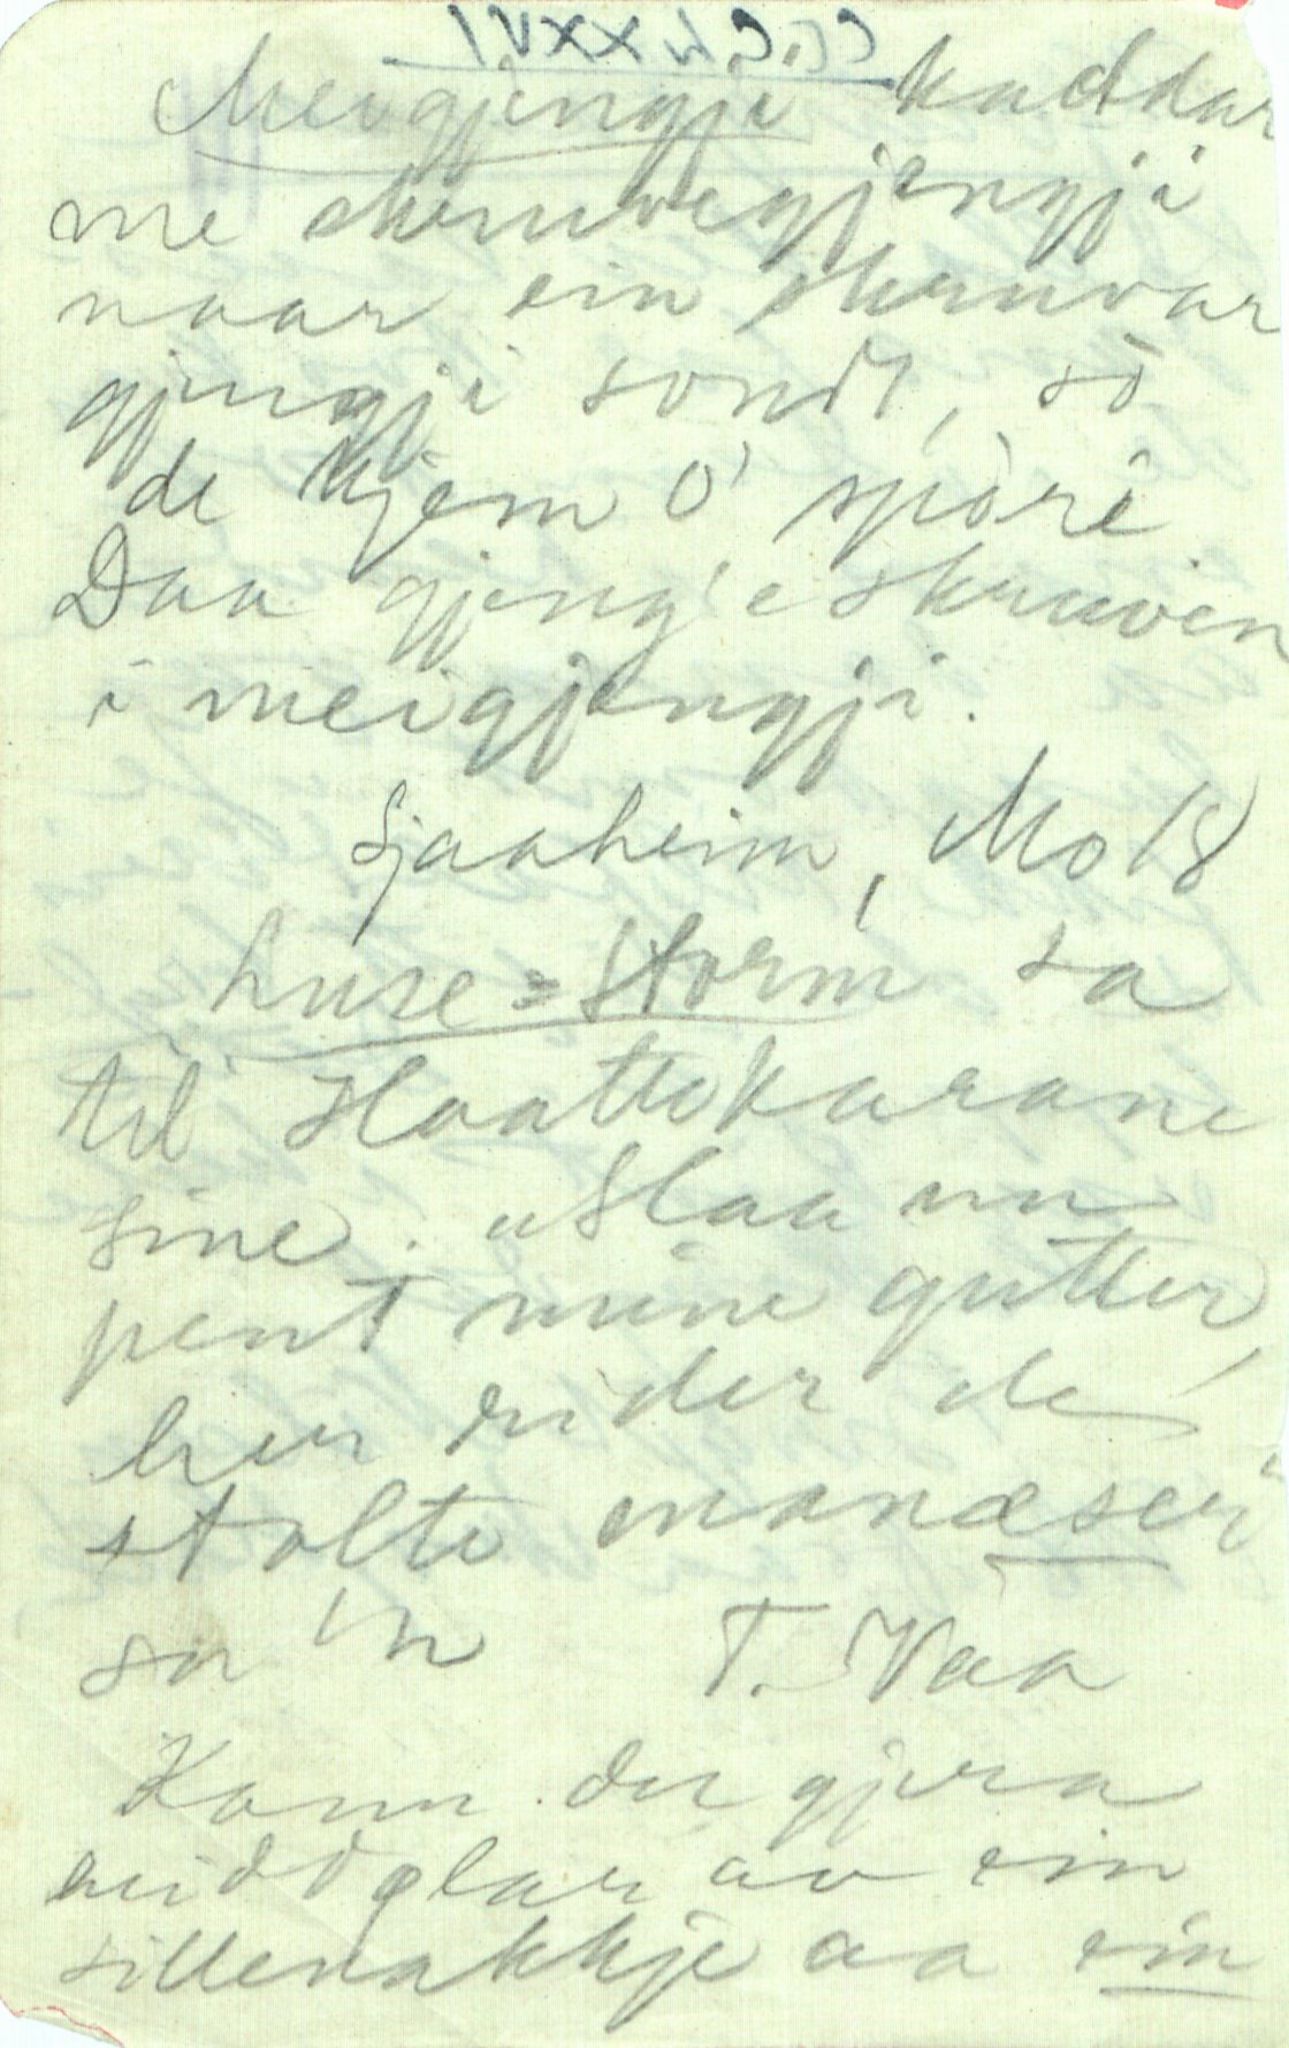 Meigjengji kaddar
me skruvegjengji
naar ein skruvar
gjengji sondt, so
de kjem o' spore
Daa gjeng'e skruven
i meigjengji.
Sjaaheim, Mo 18
Luse=Storm sa
til slaattekarane
sine. "Slaa nu
pent mine gutter,
her rider de
stolte
sa 'n T. Vaa
Kann du gjera
av ein
sillenakkje aa ein